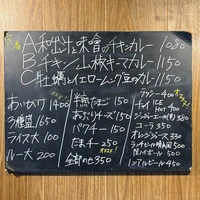 A 和出汁と味噌のチキンカレー 1080
B チキン山椒キーマカレー 1150
C 牡蠣とイエロームング豆のカレー 1150
あいがけ 1400
3種盛 1650
ライス大 100
ルー大 200
半熟たまご 150
あぶりチーズ 150
パクチー 150
たまチー 250
オススメ!
全部のせ 350
ラッシー 400
チャイ ICE HOT 400
ジンジャーエール(辛) 380
コーラ 350
オレンジジュース 330
ハイボール 500
ノンアルビール 450